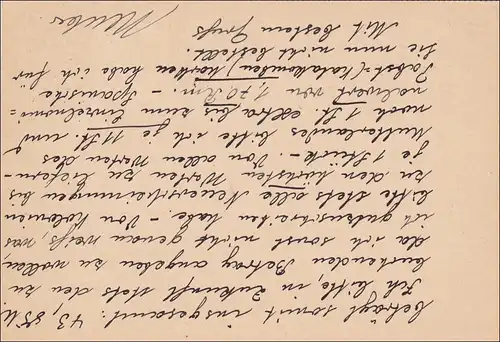 beträgt somit insgesamt: 43,85 M.
Ich bitte, in Zukunft stets den zu
den Betrag angeben zu wollen,
da ich sonst nicht genau weiß, was
ich gutzuschreiben habe. - Von Kolonien
bitte stets alle Neuerscheinungen bis
zu den höchsten Werten zu liefern -
je 1 Stück. - Von allen Werten des
Mutterlandes bitte ich je 11 St. und
noch 1 St. extra bis zum Einzelnomi=
nalwert von 1,70 Rm. - Spanische
karten habe ich für
Sie nun nicht bestellt.
Mit bestem Gruß